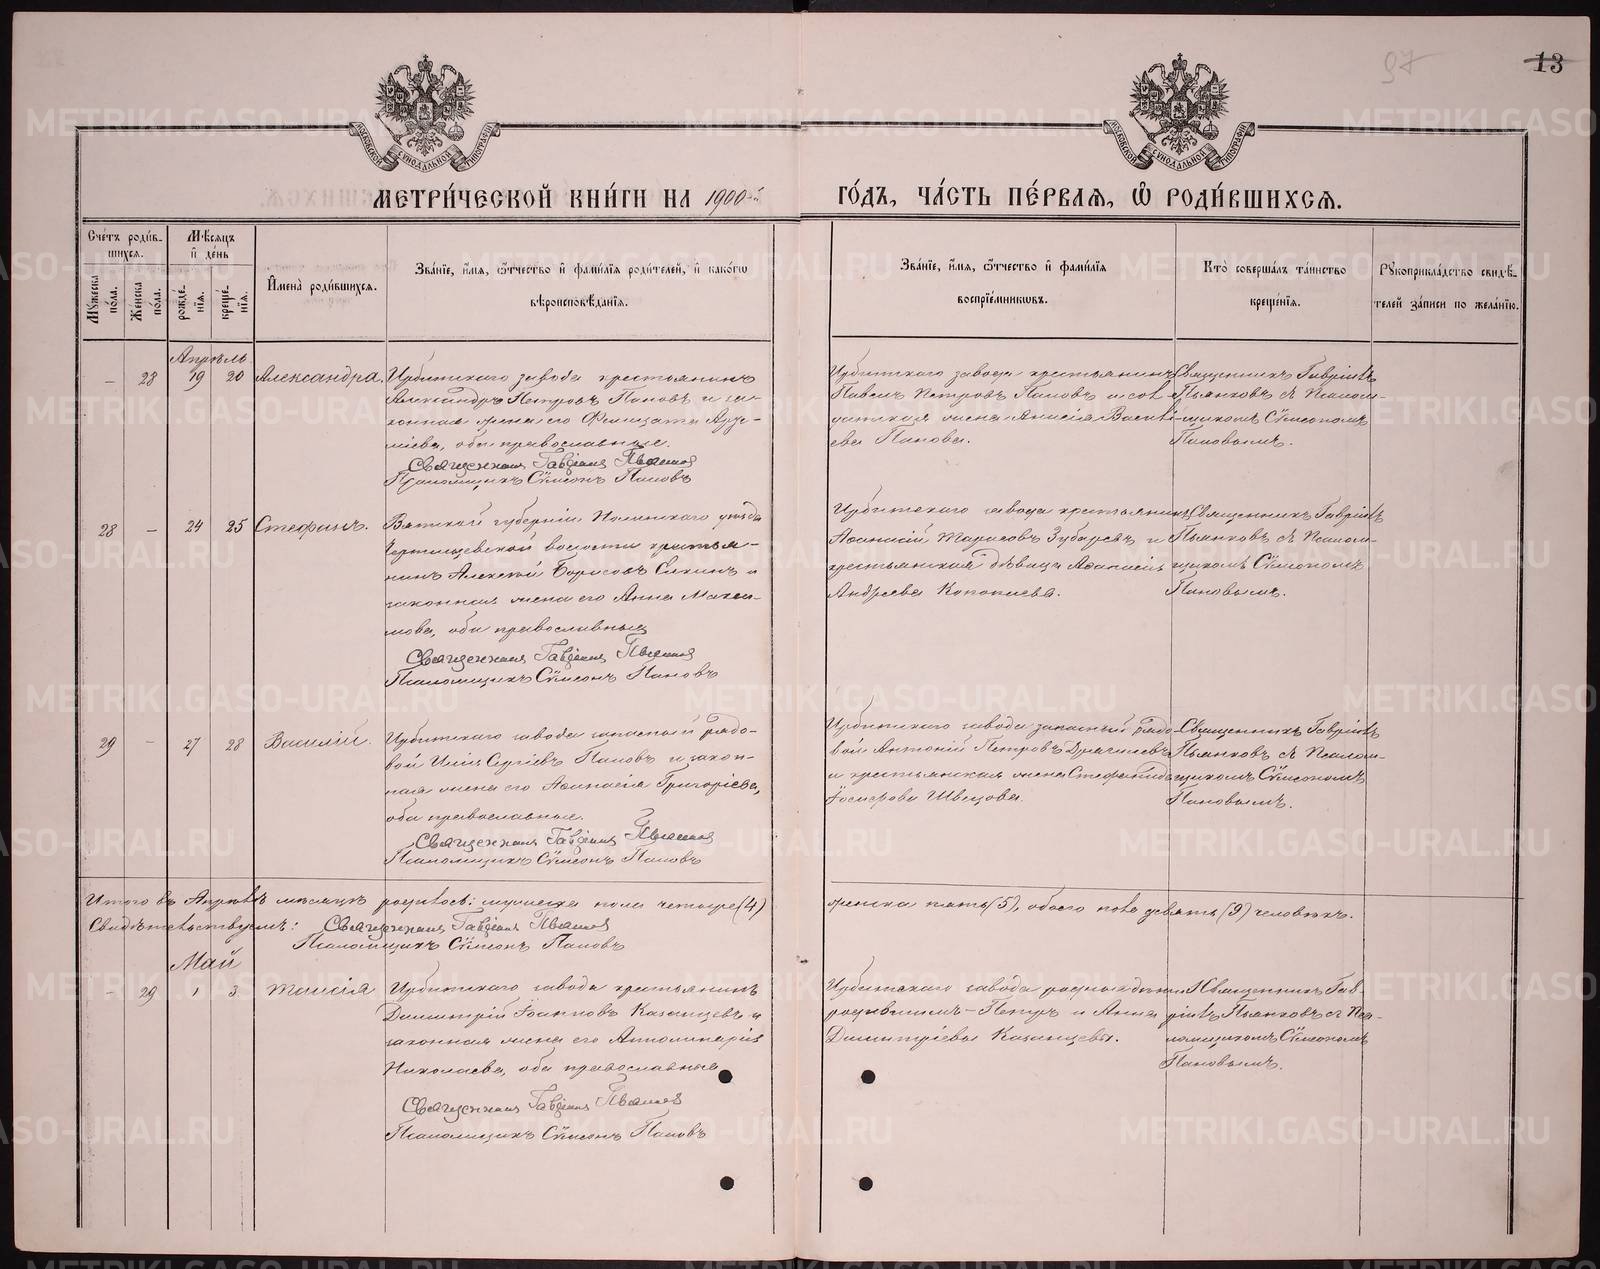 97
13
МОСКОВСКОЙ СѴНОДАЛЬНОЙ ТИПОГРАФІИ
МОСКОВСКОЙ СѴНОДАЛЬНОЙ ТИПОГРАФІИ
МЕТРИ́ЧЕСКОЙ КНИ́ГИ НА 1900-й ГО́ДЪ, ЧА́СТЬ ПЕ́РВАѦ, Ѽ РОДИ́ВШИХСѦ.
Сче́тъ роди́в-
шихся.
Мѣ́сяцъ
и҆ де́нь
Мꙋ́жеска по́ла.
Же́нска по́ла.
рожде́-
нїѧ.
креще́-
нїѧ.
И҆мена̀ роди́вшихсѧ.
Зва́нїе, и҆́мѧ, ѻ҆́тчество и҆ фами́лїѧ роди́телей, и҆ како́гѡ
вѣроисповѣ́данїѧ.
Зва́нїе, и҆́мѧ, ѻ҆́тчество и҆ фами́лїѧ
воспрїе́мниковъ.
Кто̀ соверша́лъ та́инство
креще́нїѧ.
Рꙋкоприкла́дство свидѣ́-
телей за́писи по жела́нїю.
Апрѣль
– 28 19 20 Александра.
Ирбитскаго завода крестьянинъ
Александръ Петровъ Пановъ и за-
конная жена его Фелицата
оба православные.
Священникъ Гавріилъ Пьянков
Псаломщикъ Сѵмеонъ Пановъ
Ирбитскаго завода крестьянинъ
Павелъ Петровъ Пановъ и сол-
датская жена Анисія Василі-
ева Панова.
Священникъ Гавріилъ
Пьянковъ съ Псалом-
щикомъ Сѵмеономъ
Пановымъ.
28 – 24 25 Стефанъ.
Вятской губерніи Нолинскаго уѣзда
волости крестья-
нинъ Алексѣй Борисовъ и
законная жена его Анна Макси-
мова, оба православные
Священникъ Гавріилъ Пьянков
Псаломщикъ Сѵмеонъ Пановъ
Ирбитскаго завода крестьянинъ
Зубаревъ и
крестьянская дѣвица Аѳанасія
Андреева
Священникъ Гавріилъ
Пьянковъ съ Псалом-
щикомъ Сѵмеономъ
Пановымъ.
29 – 27 28 Василій.
Ирбитскаго завода запасный рядо-
вой Илія Сергіевъ Пановъ и закон-
ная жена его Аѳанасія Григоріева,
оба православные.
Священникъ Гавріилъ Пьянков
Псаломщикъ Сѵмеонъ Пановъ
Ирбитскаго завода запасный рядо-
вой Антоній Петровъ
и крестьянская жена Стефанида
Швецова.
Священникъ Гавріилъ
Пьянковъ съ Псалом-
щикомъ Сѵмеономъ
Пановымъ.
Итого въ Апрѣлѣ мѣсяцѣ родилось: мужеска пола четыре (4)
женска пять (5), обоего пола девять (9) человѣкъ.
Свидѣтельствуемъ: Священникъ Гавріилъ Пьянков
Псаломщикъ Сѵмеонъ Пановъ
Май
– 29 1 3 Таисія
Ирбитскаго завода крестьянинъ
Димитрій Іоанновъ Казанцевъ и
законная жена его Апполинарія
Николаева, оба православные
Священникъ Гавріилъ Пьянков
Псаломщикъ Сѵмеонъ Пановъ
Ирбитскаго завода родные дѣти
родившимъ – Петръ и Анна
Димитріевы Казанцевы.
Священникъ Гав-
ріилъ Пьянковъ съ Пса-
ломщикомъ Сѵмеономъ
Пановымъ.
METRIKI.GASO-URAL.RU